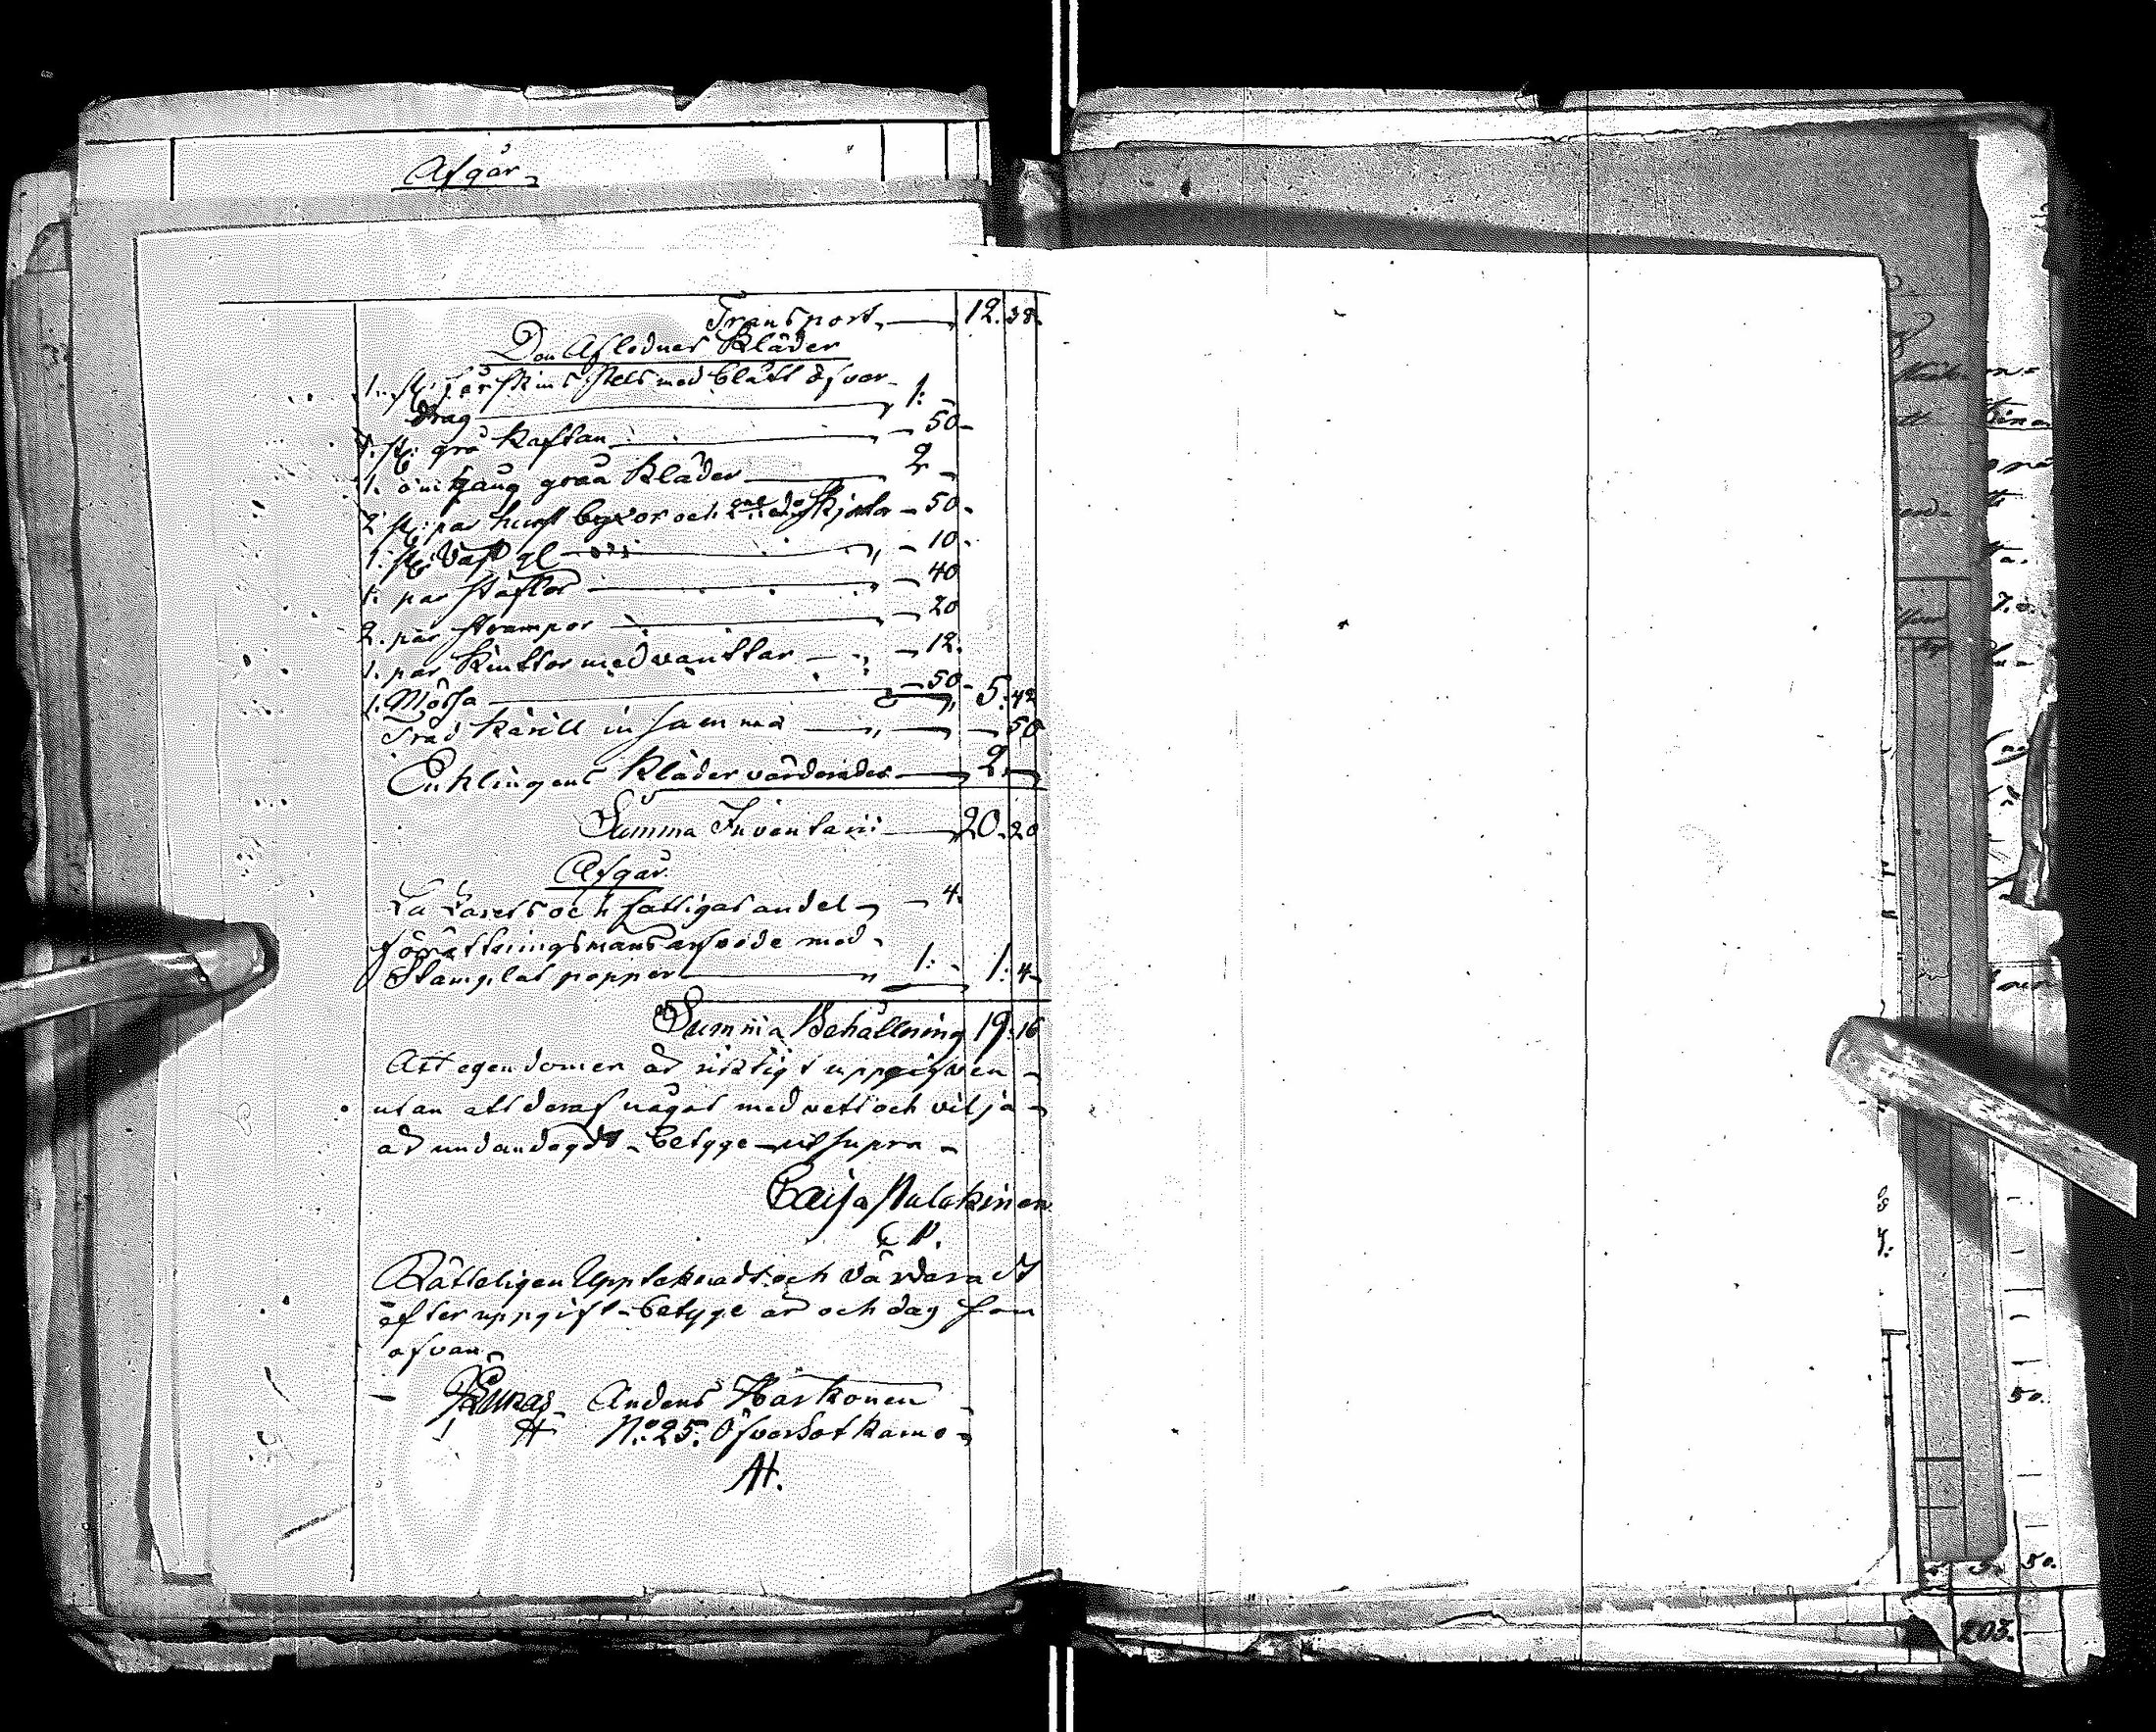 Afgår
Transport, 12. 38.
Den Aflednes Kläder
1. st: fårskins Pels med blått öfver-
drag 1: -
1. st: grå Kaftan - 50-
1. omgång gråa Kläder 2 -
2 st: par hurst byxor och 2ne do Skjortor - 50.
1. st: Väst gl - 10.
1. par stöflor - 40
2. par strumpor - 20
1. par Kinttor med vanttar - 12.
1. Mössa - 50- 5. 42
Träd Kärill in summa - 50
Enklingens Kläder värderades 2. -
Summa Inventarii 20. 20
Afgår.
La Zarets och fattigas andel - 4.
förrättningsmans arfvode med
Stämplat papper 1: - 1. 4-
Summa Behållning 19. 16
Att egendomen är riktigt uppgifven
utan att deraf något med vett och vilja
är undandogdt - betyge ut supra -
Caisa Mulakinen
C M.
Rätteligen Uppteknadt och Värderadt
efter uppgift - betyge år och dag som
ofvan
Anders Härkonen
No: 25. Öfversotkamo
AH.
50.
50.
203.